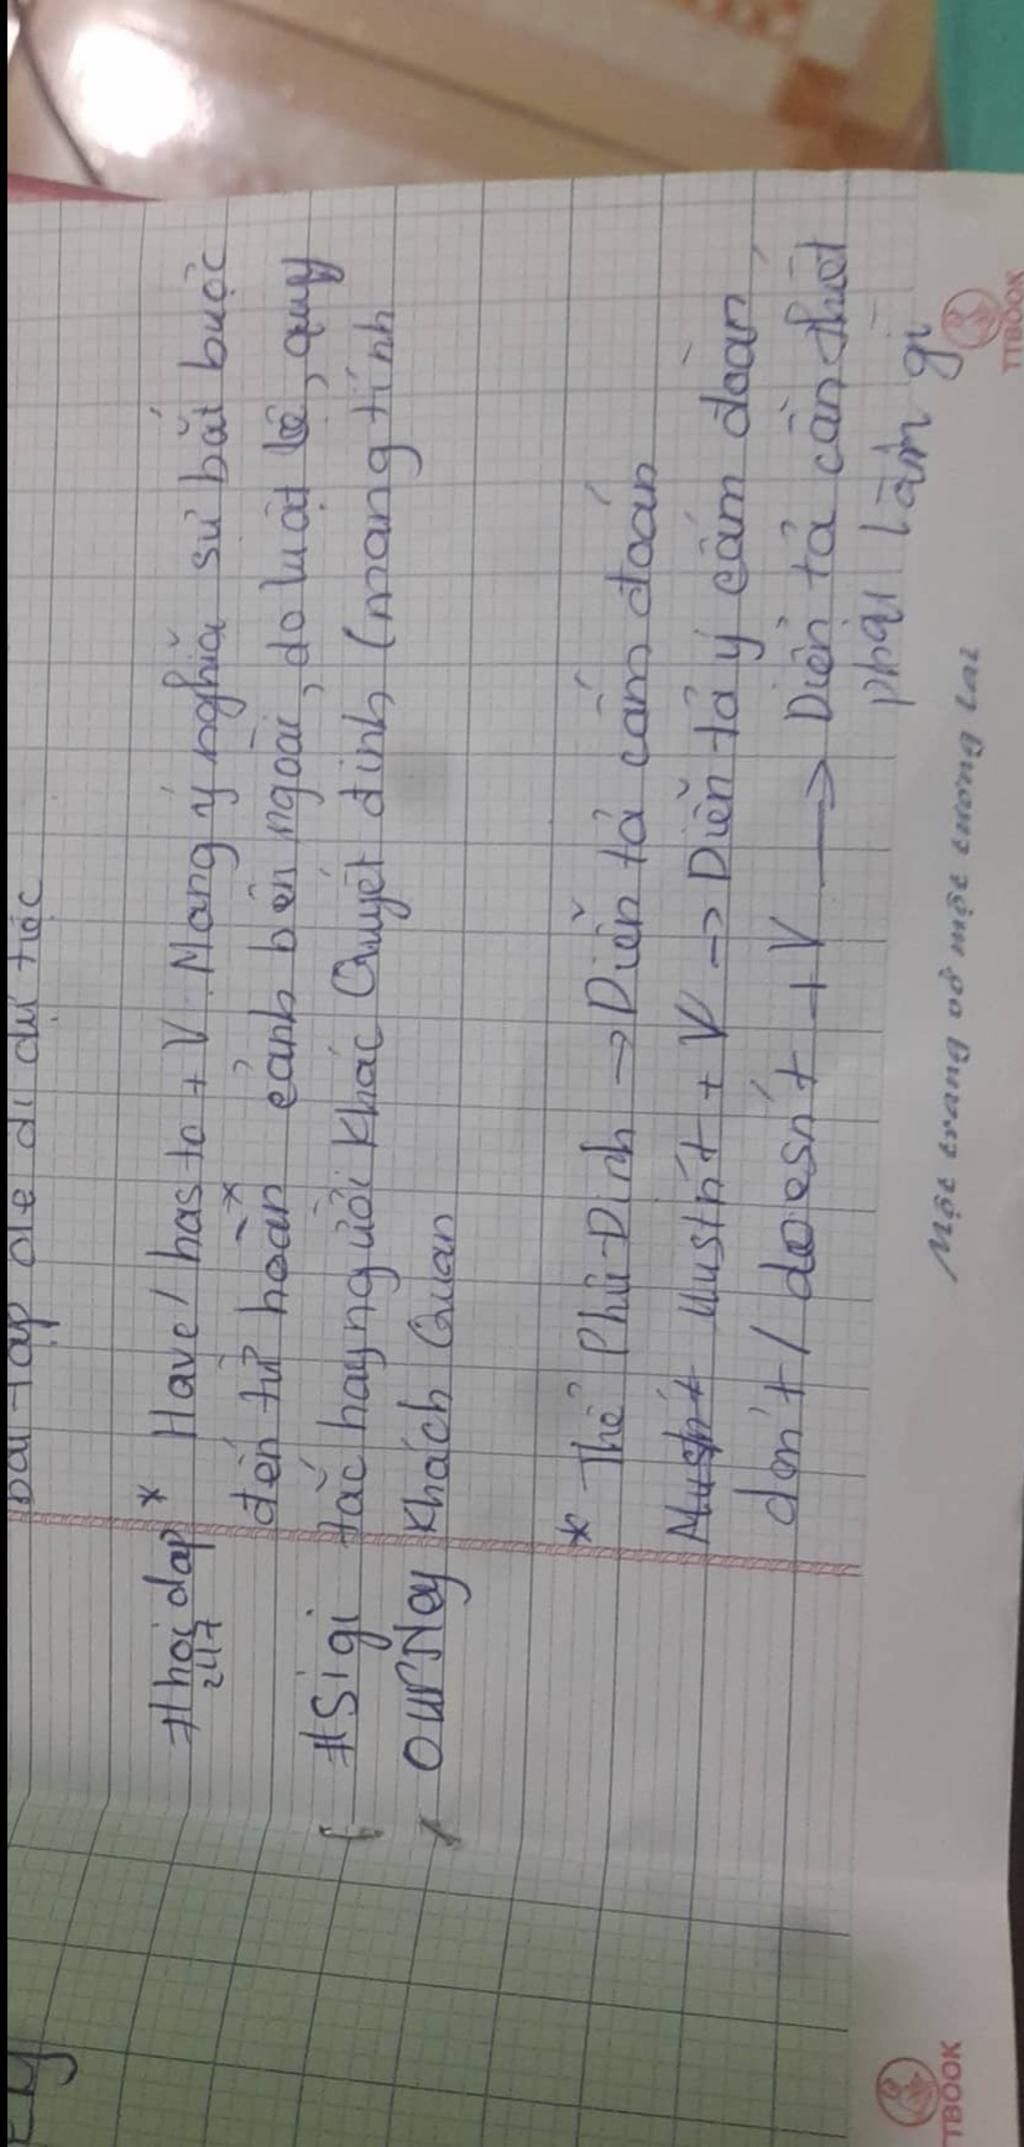 bài tập để đi dự tiệc
#hỏi đáp * Have / has to + V Mang ý nghĩa sự bắt buộc
247
đến từ hoàn cảnh bên ngoài, do luật lệ, quy
#Sigi tắc hay người khác Quyết định (mang tính
OURNey Khách Quan
* Thể Phủ Định → Diễn tả cấm đoán
Mustn't Mustn't + V → Diễn tả ý cấm đoán
don't / doesn't + V → Diễn tả cần thiết
phải làm gì
Một trang vở một tương lai
TTBOOK
TBOOK